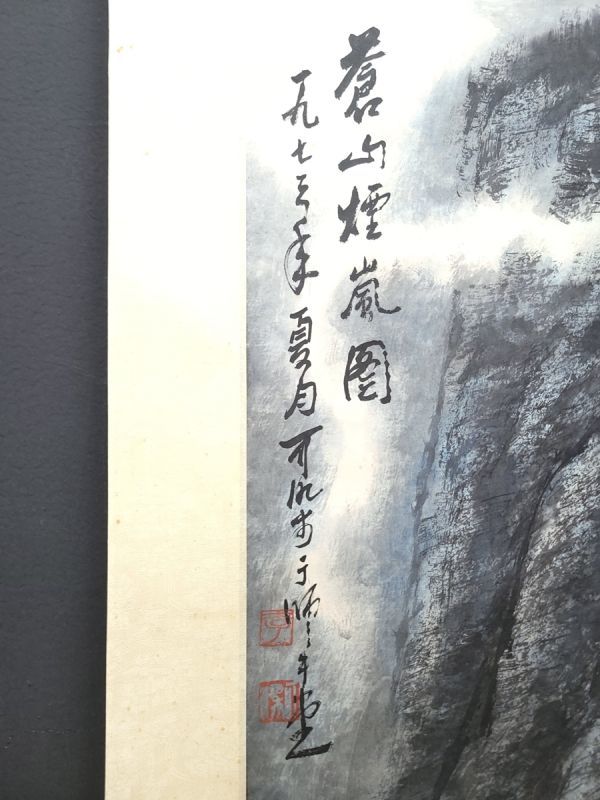 蒼山煙嵐圖
一九七三年夏月可染作于師牛堂